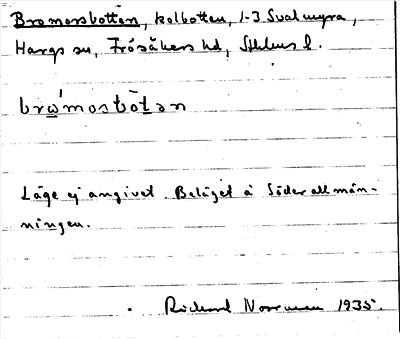 Bromorsbotten, kolbotten, 1-3 Svalmyra,
Hargs sn, Frösåkers hd, Sthlms l.
brω´mosbòtən
Läge ej angivet. Beläget å Söderallmän-
ningen.
Richard Norrman 1935.